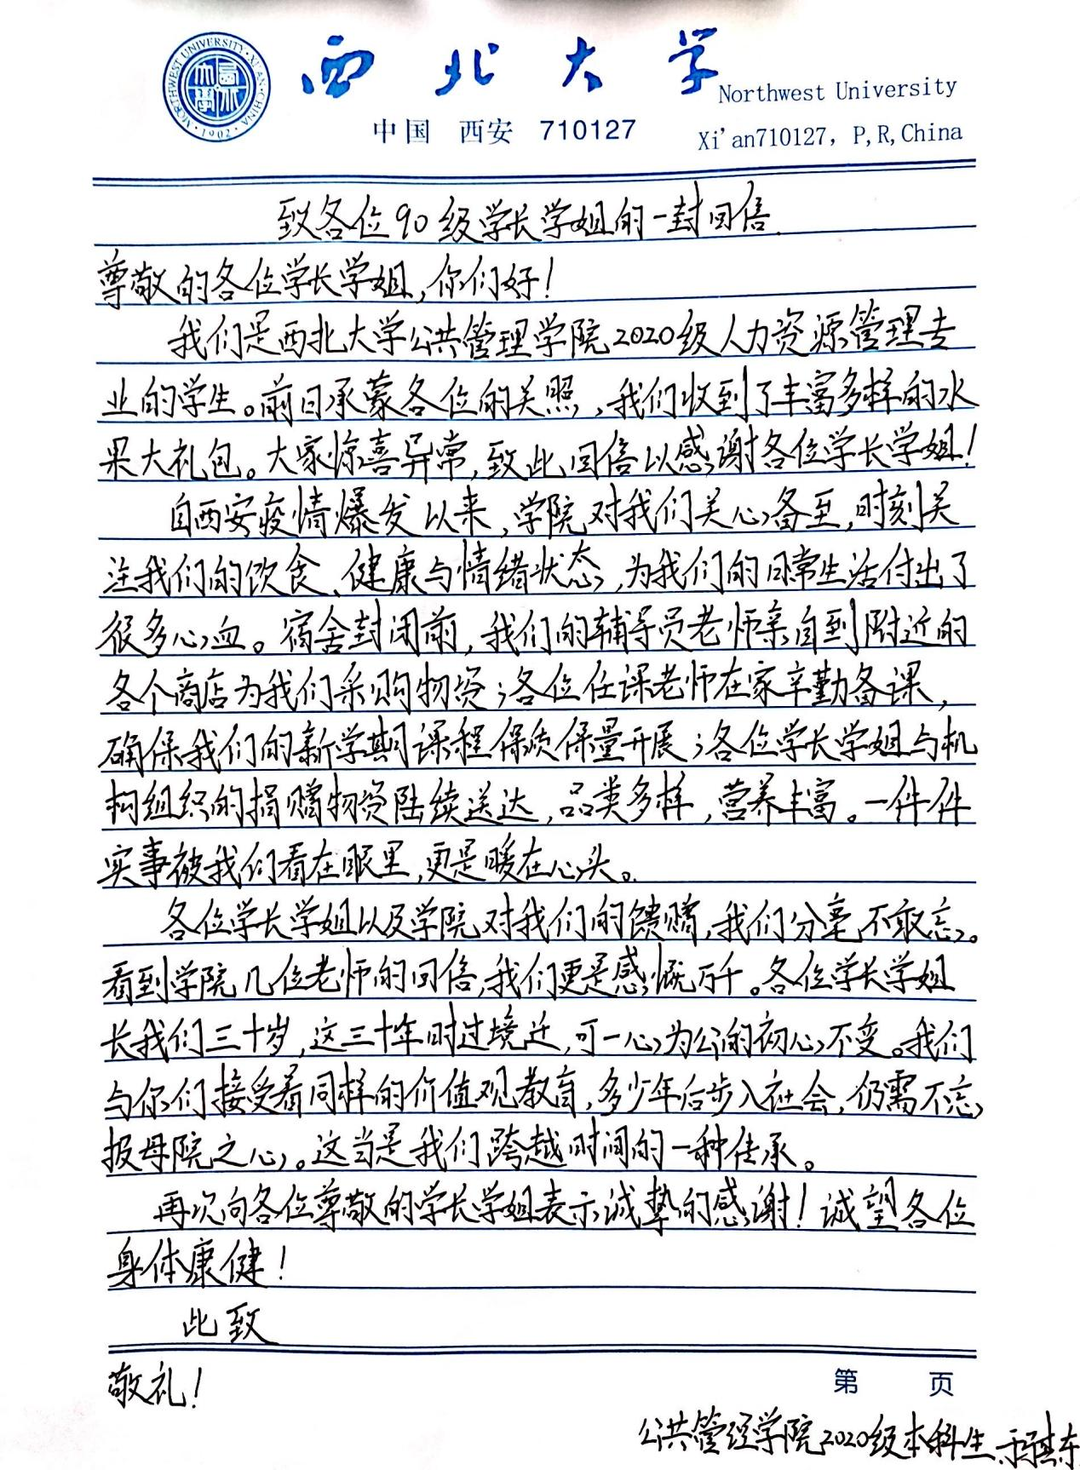 西北大学
NORTHWEST UNIVERSITY·XI'AN·CHINA
·1902·
Northwest University
中国 西安 710127
Xi'an710127, P,R,China
致各位90级学长学姐的一封回信
尊敬的各位学长学姐,你们好!
我们是西北大学公共管理学院2020级人力资源管理专
业的学生。前日承蒙各位的关照,我们收到了丰富多样的水
果大礼包。大家惊喜异常,致此回信以感谢各位学长学姐!
自西安疫情爆发以来,学院对我们关心备至,时刻关
注我们的饮食、健康与情绪状态,为我们的日常生活付出了
很多心血。宿舍封闭前,我们的辅导员老师亲自到附近的
各个商店为我们采购物资;各位任课老师在家辛勤备课,
确保我们的新学期课程保质保量开展;各位学长学姐与机
构组织的捐赠物资陆续送达,品类多样,营养丰富。一件件
实事被我们看在眼里,更是暖在心头。
各位学长学姐以及学院对我们的馈赠,我们分毫不敢忘。
看到学院几位老师的回信,我们更是感慨万千。各位学长学姐
长我们三十岁,这三十年时过境迁,可一心为公的初心不变。我们
与你们接受着同样的价值观教育,多少年后步入社会,仍需不忘
报母院之心。这当是我们跨越时间的一种传承。
再次向各位尊敬的学长学姐表示诚挚的感谢!诚望各位
身体康健!
此致
敬礼!
第 页
公共管理学院2020级本科生